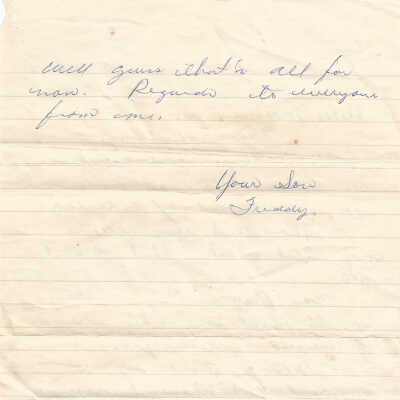 Well guess that's all for
now. Regards to everyone
from me.
Your Son
Freddy.